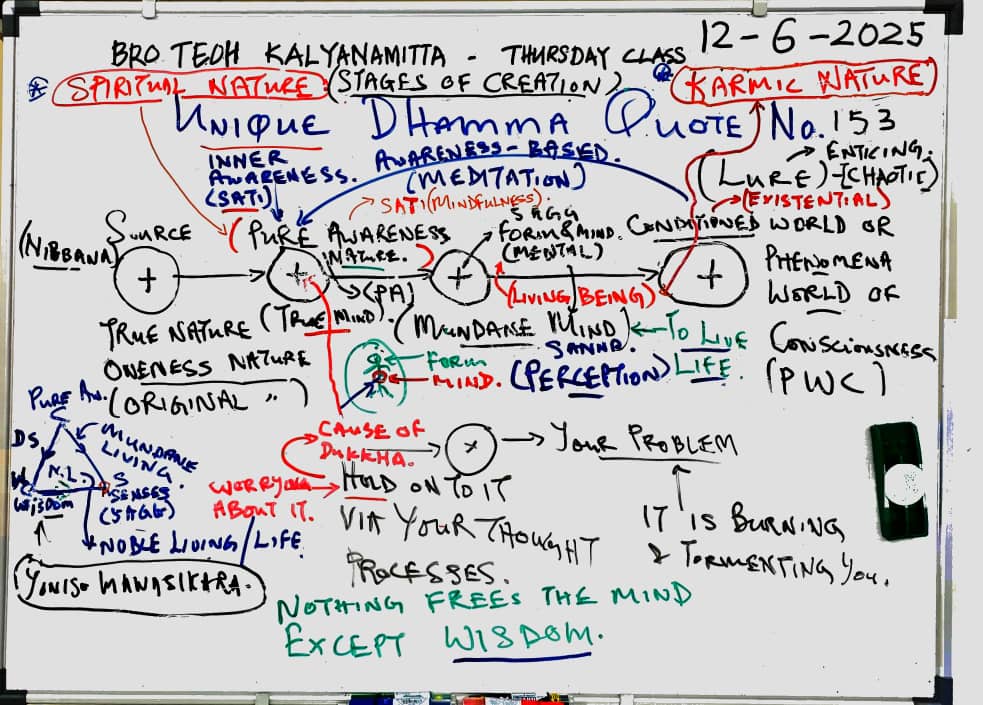 12-6-2025
BRO TEOH KALYANAMITTA - THURSDAY CLASS
SPIRITUAL NATURE (STAGES OF CREATION) KARMIC NATURE
UNIQUE DHAMMA QUOTE No. 153
INNER AWARENESS. (SATI)
AWARENESS-BASED.
(MEDITATION)
(LURE)-(CHAOTIC)
→ ENTICING.
→ (EXISTENTIAL)
→ SATI (MINDFULNESS).
(NIBBANA)
SOURCE
+
(PURE AWARENESS
NATURE.)
+
→ (PA)
5AGG
FORM & MIND.
(MENTAL)
+
CONDITIONED WORLD OR
PHENOMENA
WORLD OF
CONSCIOUSNESS
(PWC)
+
(LIVING BEING)
TRUE NATURE (TRUE MIND).
ONENESS NATURE
(ORIGINAL " )
(MUNDANE MIND) ← TO LIVE
LIFE.
SANNA.
(PERCEPTION)
← FORM
← MIND.
PURE AW.
DS
MUNDANE
LIVING.
N.L.
W
WISDOM
S
SENSES
(5AGG)
NOBLE LIVING/LIFE
YONISO MANASIKARA.
CAUSE OF
DUKKHA.
→ × → YOUR PROBLEM
WORRYING → HOLD ON TO IT
ABOUT IT.
VIA YOUR THOUGHT
PROCESSES.
IT IS BURNING
& TORMENTING YOU.
NOTHING FREES THE MIND
EXCEPT WISDOM.